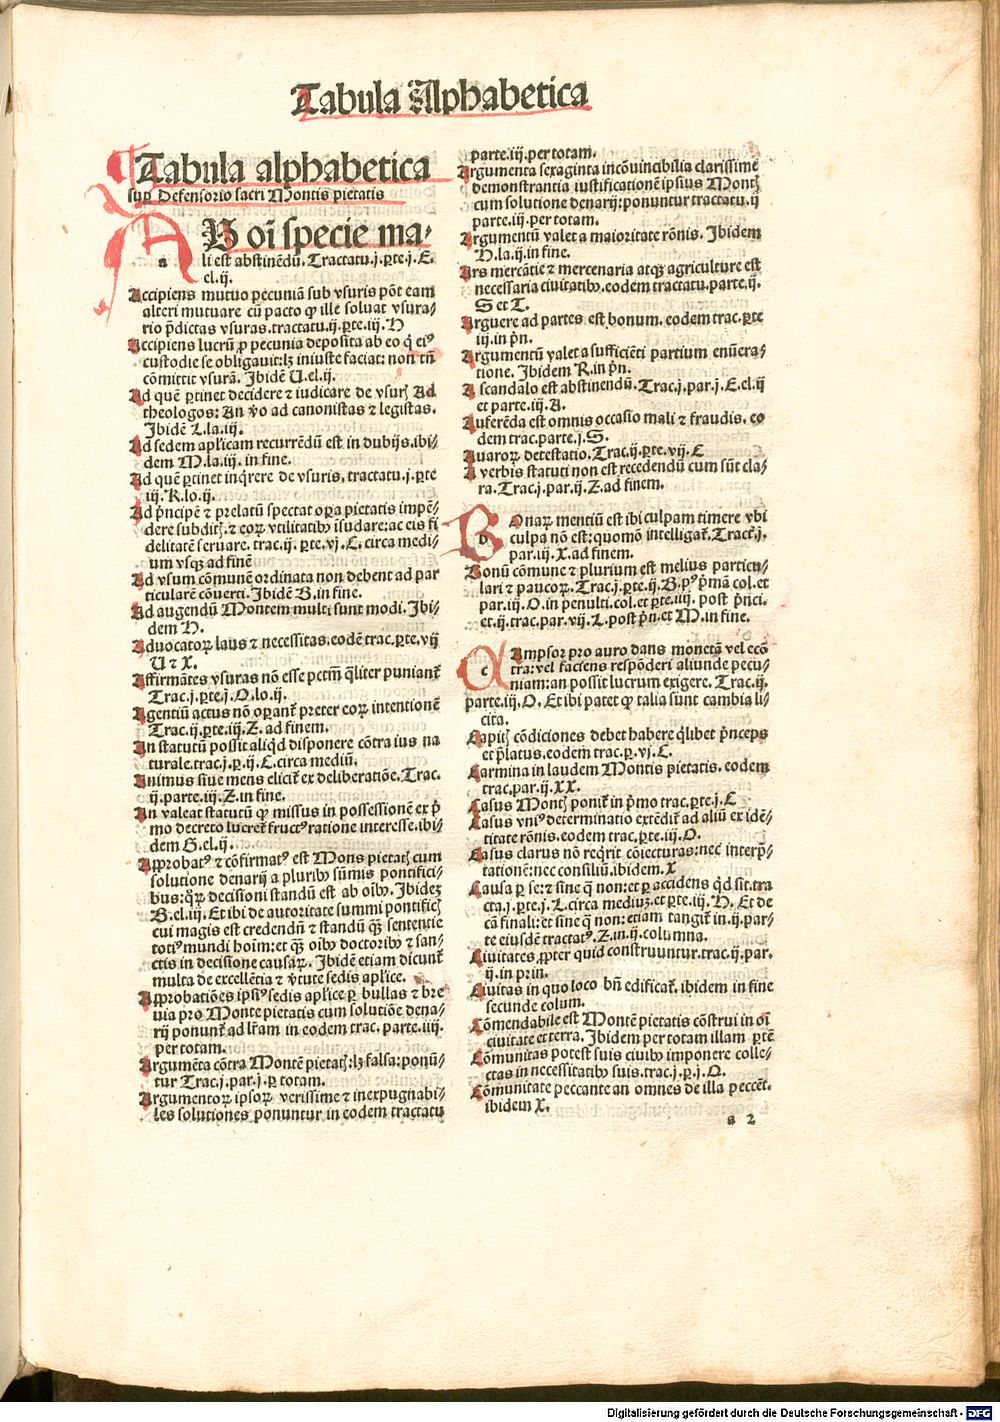 Tabula Alphabetica
Tabula alphabetica
sup Defensorio sacri Montis pietatis
AB oī specie ma⸗
li est abstinēdū. Tractatu.j.ꝑte.j.E.
el.ij.
Accipiens mutuo pecuniā sub vsuris pōt eam
alteri mutuare cū pacto ꝙ ille soluat vsura⸗
rio p̄dictas vsuras.tractatu.ij.ꝑte.iij.H
Accipiens lucrū ꝓ pecunia deposita ab eo q̇ eiꝰ
custodie se obligauit:lꝫ iniuste faciat: non tn̄
cōmittit vsurā. Ibidē U.el.ij.
Ad quē ꝑtinet decidere ⁊ iudicare de vsurꝭ Ad
theologos: An v̄o ad canonistas ⁊ legistas.
Ibidē L.la.iij.
Ad sedem apl̄icam recurrēdū est in dubijs.ibi⸗
dem M.la.iij. in fine.
Ad quē ꝑtinet inq̇rere de vsuris. tractatu.j.ꝑte
iij. K.lo.ij.
Ad p̄ncipē ⁊ prelatū spectat oꝑa pietatis impē⸗
dere subditꝭ.⁊ eoꝝ vtilitatibꝰ īsudare:ac eis fi
delitatē seruare. trac.ij. ꝑte.vj.C. circa medi⸗
um vsqꝫ ad finē
Ad vsum cōmunē ordinata non debent ad par
ticularē cōuerti. Ibidē B. in fine.
Ad augendū Montem multi sunt modi. Ibi⸗
dem H.
Aduocatoꝝ laus ⁊ necessitas. eodē trac.ꝑte.vij
U ⁊ X.
Affirmātes vsuras nō esse pctm̄ q̄liter puniant᷑
Trac.j.ꝑte.j.O.lo.ij.
Agentiū actus nō oꝑant᷑ preter eoꝝ intentionē
Trac.ij.ꝑte.iij.Z. ad finem.
An statutū possit aliq̇d disponere cōtra ius na
turale.trac.j.ꝑ.ij.C.circa mediū.
Animus siue mens elicit᷑ ex deliberatiōe. Trac.
ij.parte.iij.Z.in fine.
An valeat statutū ꝙ missus in possessionē ex p̄
mo decreto lucret᷑ fructꝰ ratione interesse.ibi⸗
dem G.el.ij.
Approbatꝰ ⁊ cōfirmatꝰ est Mons pietatꝭ cum
solutione denarij a pluribꝰ sūmis pontifici⸗
bus:q̄ꝝ decisioni standū est ab oībꝰ. Ibideꝫ
B.el.iij. Et ibi de autoritate summi pontificꝭ
cui magis est credendū ⁊ standū q̄ꝫ sententie
totiꝰ mundi hoīm: et q̄ꝫ oībꝰ doctoribꝰ ⁊ san⸗
ctis in decisione causaꝝ. Ibidē etiam dicunt᷑
multa de excellētia ⁊ v̄tute sedis apl̄ice.
Approbatiōes ipsiꝰ sedis apl̄ice ꝑ bullas ⁊ bre
uia pro Monte pietatis cum solutiōe dena⸗
rij ponunt᷑ ad lr̄am in eodem trac. parte.iiij.
per totam.
Argumēta cōtra Montē pietatꝭ:lꝫ falsa: ponū⸗
tur Trac.j.par.j.ꝑ totam.
Argumentoꝝ ipsoꝝ verissime ⁊ inexpugnabi⸗
les solutiones ponuntur in eodem tractatu
parte.iij.per totam.
Argumenta sexaginta incōuincibilia clarissime
demonstrantia iustificationē ipsius Montꝭ
cum solutione denarij: ponuntur tractatu.ij
parte.iij.per totam.
Argumentū valet a maioritate rōnis. Ibidem
H.la.ij.in fine.
Ars mercātie ⁊ mercenaria atqꝫ agriculture est
necessaria ciuitatibꝰ.eodem tractatu.parte.ij.
S et T.
Arguere ad partes est bonum. eodem trac.ꝑte
iij.in pn̄.
Argumentū valet a sufficiēti partium enūera⸗
tione. Ibidem R.in pn̄.
A scandalo est abstinendū. Trac.j.par.j.E.el.ij
et parte.iij.A.
Auferēda est omnis occasio mali ⁊ fraudis. eo
dem trac.parte.j.S.
Auaroꝝ detestatio. Trac.ij.ꝑte.vij.C
A verbis statuti non est recedendū cum sūt cla⸗
ra. Trac.j.par.ij.Z.ad finem.
BOnaꝝ mentiū est ibi culpam timere vbi
culpa nō est: quomō intelligat᷑. Tract.j.
par.iij.X.ad finem.
Bonū cōmune ⁊ plurium est melius particu⸗
lari ⁊ paucoꝝ. Trac.j.ꝑte.ij.B.pꝰ p̄mā col.et
par.iij.O.in penulti.col.et ꝑte.iiij. post p̄nci.
et.ij.trac.par.vij.L.post pn̄.et M.in fine.
CAmpsor pro auro dans monetā vel ecō
tra: vel faciens respōderi aliunde pecu⸗
niam: an possit lucrum exigere. Trac.ij.
parte.iij.O. Et ibi patet ꝙ talia sunt cambia li
cita.
Capitꝭ cōdiciones debet habere q̄libet p̄nceps
et p̄latus.eodem trac.ꝑ.vj.C.
Carmina in laudem Montis pietatis. eodem
trac.par.ij.XX.
Casus Montꝭ ponit᷑ in p̄mo trac.ꝑte.j.E
Casus vniꝰ determinatio extēdit᷑ ad aliū ex idē⸗
titate rōnis.eodem trac.ꝑte.iij.O.
Casus clarus nō req̇rit cōiecturas: nec interp̄⸗
tationē: nec consiliū.ibidem.X
Causa ꝑ se: ⁊ sine q̄ non: et ꝑ accidens q̇d sit.tra
cta.j.ꝑte.j.L.circa mediuꝫ.et ꝑte.iij.H. Et de
cā finali: et sine q̄ non: etiam tangit᷑ in.ij.par⸗
te eiusdē tractatꝰ.Z.in.ij.columna.
Ciuitates ꝓpter quid construuntur.trac.ij.par.
ij.in prin.
Ciuitas in quo loco bn̄ edificat᷑. ibidem in fine
secunde colum.
Cōmendabile est Montē pietatis cōstrui in oī
ciuitate et terra. Ibidem per totam illam ꝑtē
Cōmunitas potest suis ciuibꝰ imponere colle⸗
ctas in necessitatibꝰ suis.trac.j.ꝑ.j.Q.
Cōmunitate peccante an omnes de illa peccēt.
ibidem X.
a 2
Digitalisierung gefördert durch die Deutsche Forschungsgemeinschaft - DFG